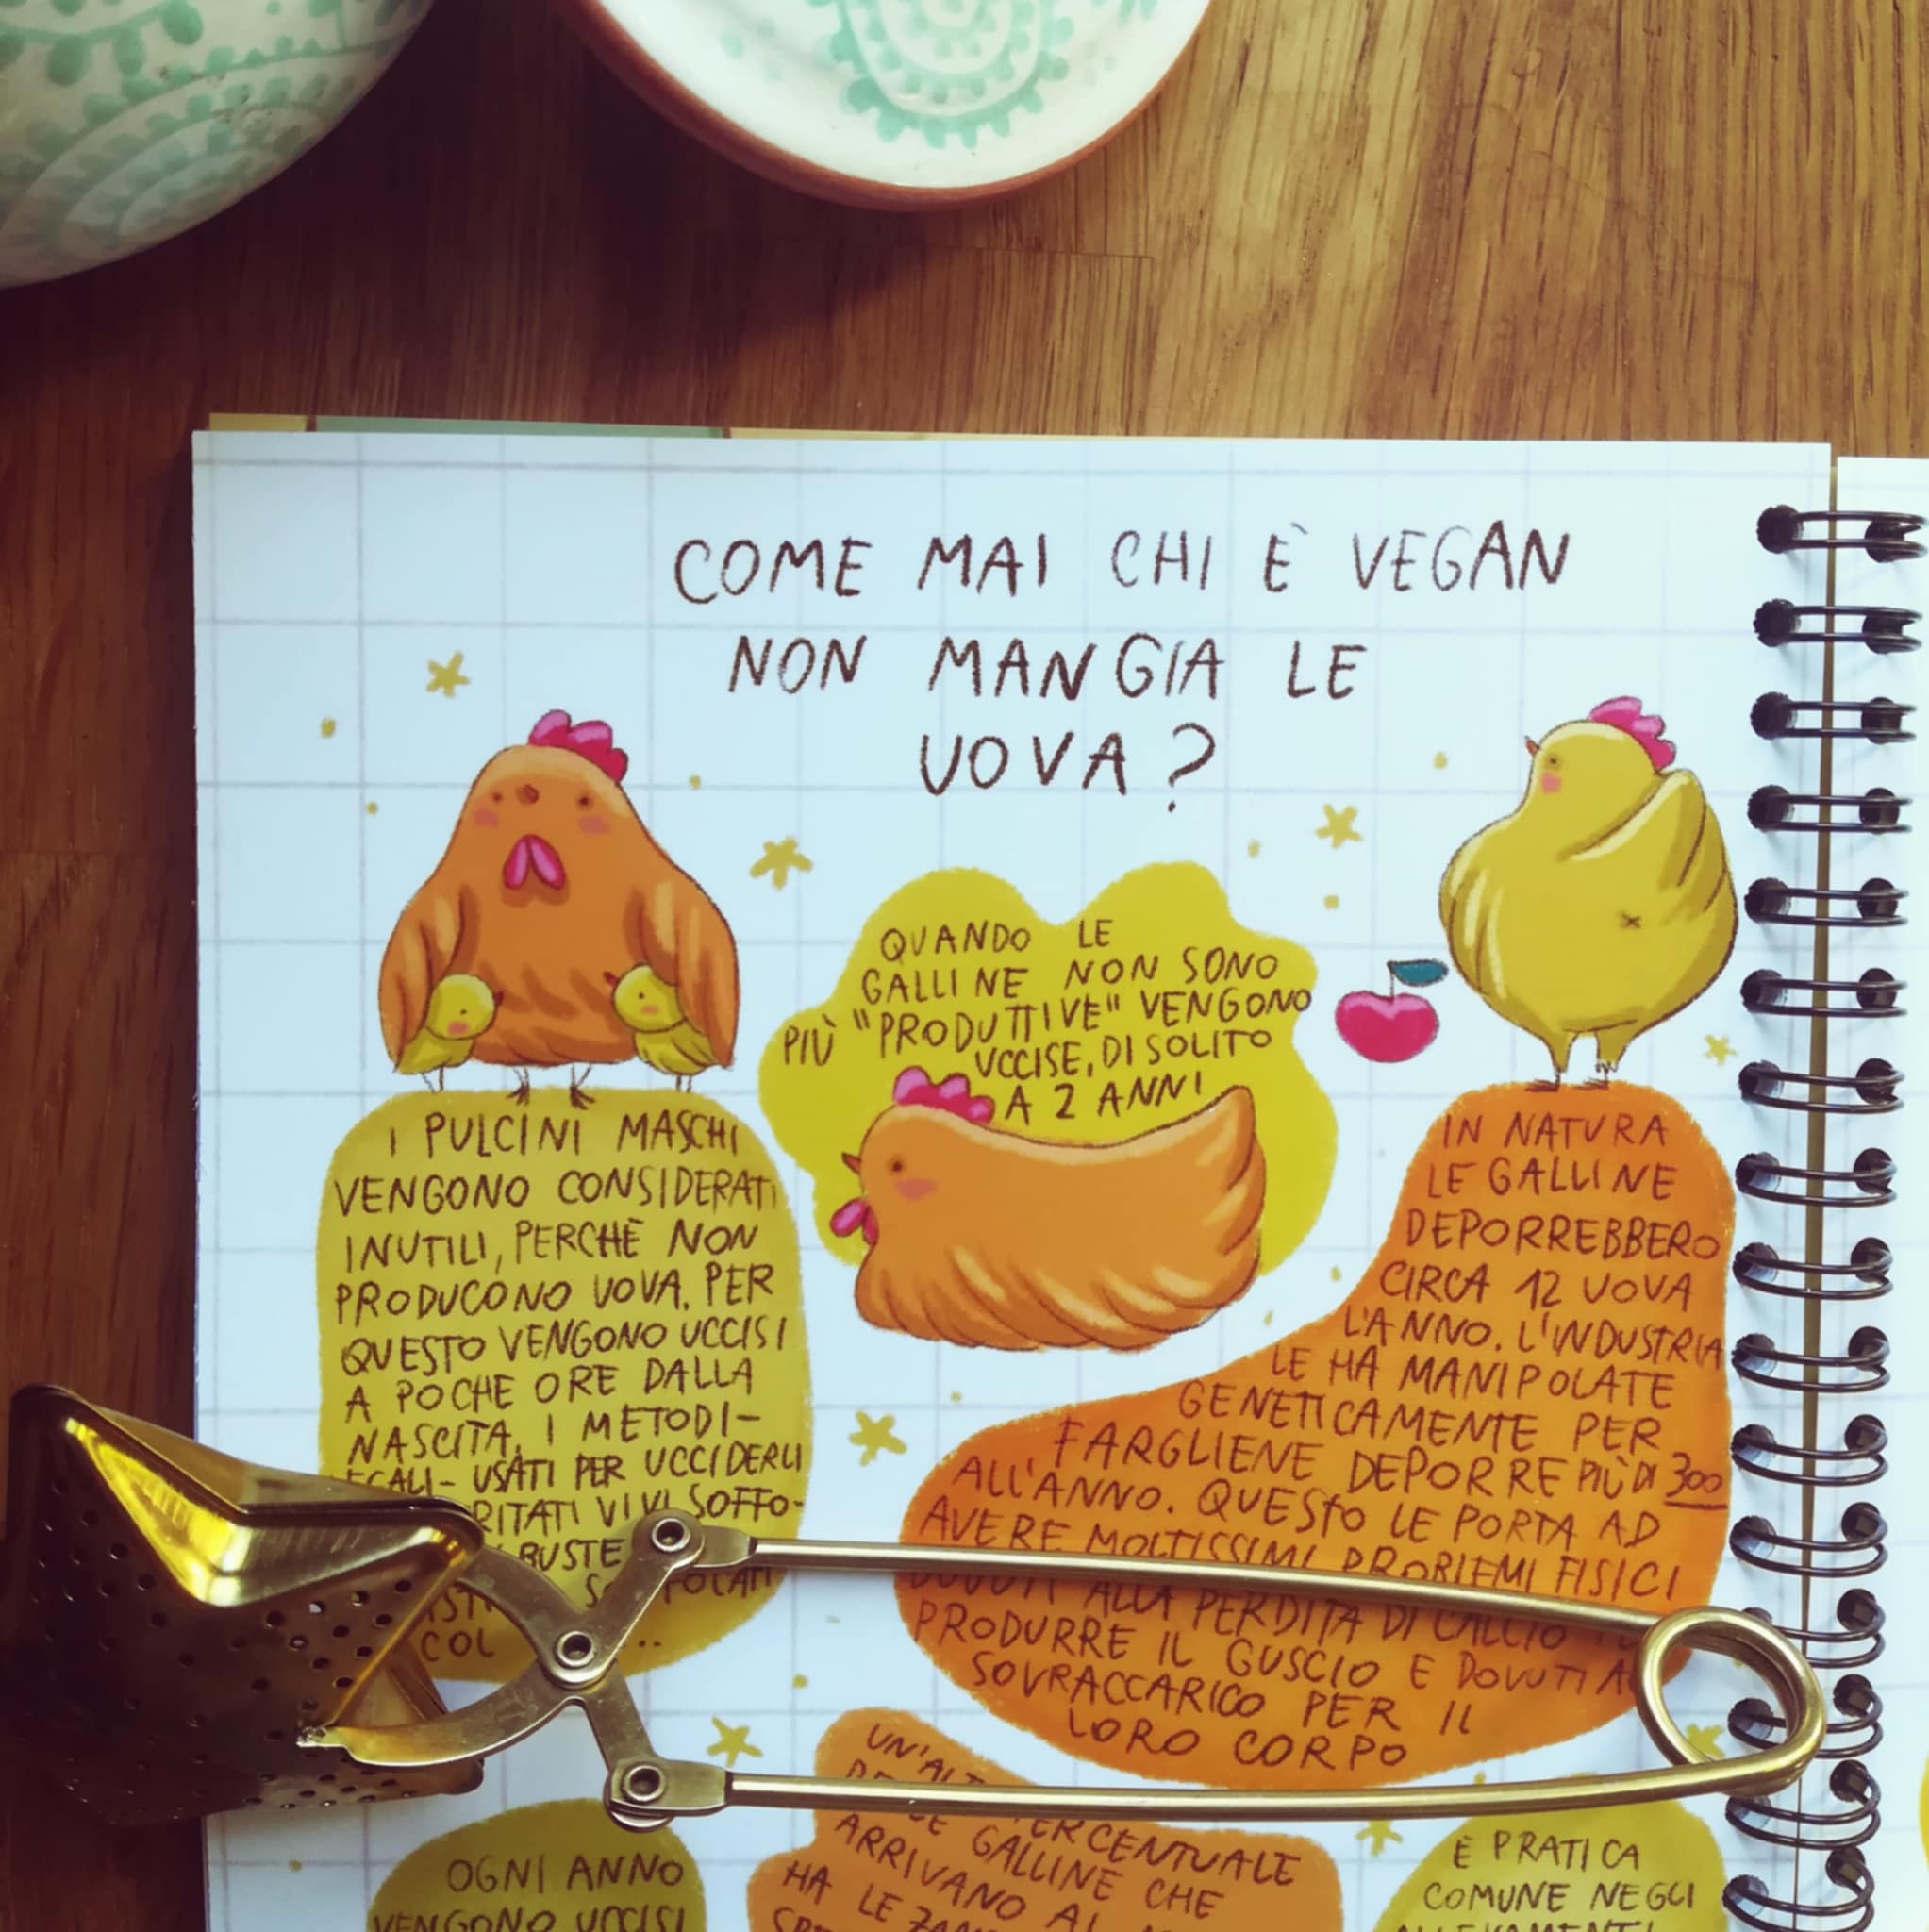 COME MAI CHI È VEGAN
NON MANGIA LE
UOVA?
QUANDO LE
GALLINE NON SONO
PIÙ "PRODUTTIVE" VENGONO
UCCISE, DI SOLITO
A 2 ANNI
I PULCINI MASCHI
VENGONO CONSIDERATI
INUTILI, PERCHÈ NON
PRODUCONO UOVA. PER
QUESTO VENGONO UCCISI
A POCHE ORE DALLA
NASCITA. I METODI-
USATI PER UCCIDERLI
VIVI, SOFFO-
BUSTE
IN NATURA
LE GALLINE
DEPORREBBERO
CIRCA 12 UOVA
L'ANNO. L'INDUSTRIA
LE HA MANIPOLATE
GENETICAMENTE PER
FARGLIENE DEPORRE PIÙ DI 300
ALL'ANNO. QUESTO LE PORTA AD
AVERE MOLTISSIMI PROBLEMI FISICI
DOVUTI ALLA PERDITA DI CALCIO
PRODURRE IL GUSCIO E DOVUTI AL
SOVRACCARICO PER IL
LORO CORPO
OGNI ANNO
VENGONO UCCISI
GALLINE CHE
ARRIVANO AL
HA LE
È PRATICA
COMUNE NEGLI
ALLEVAMENTI